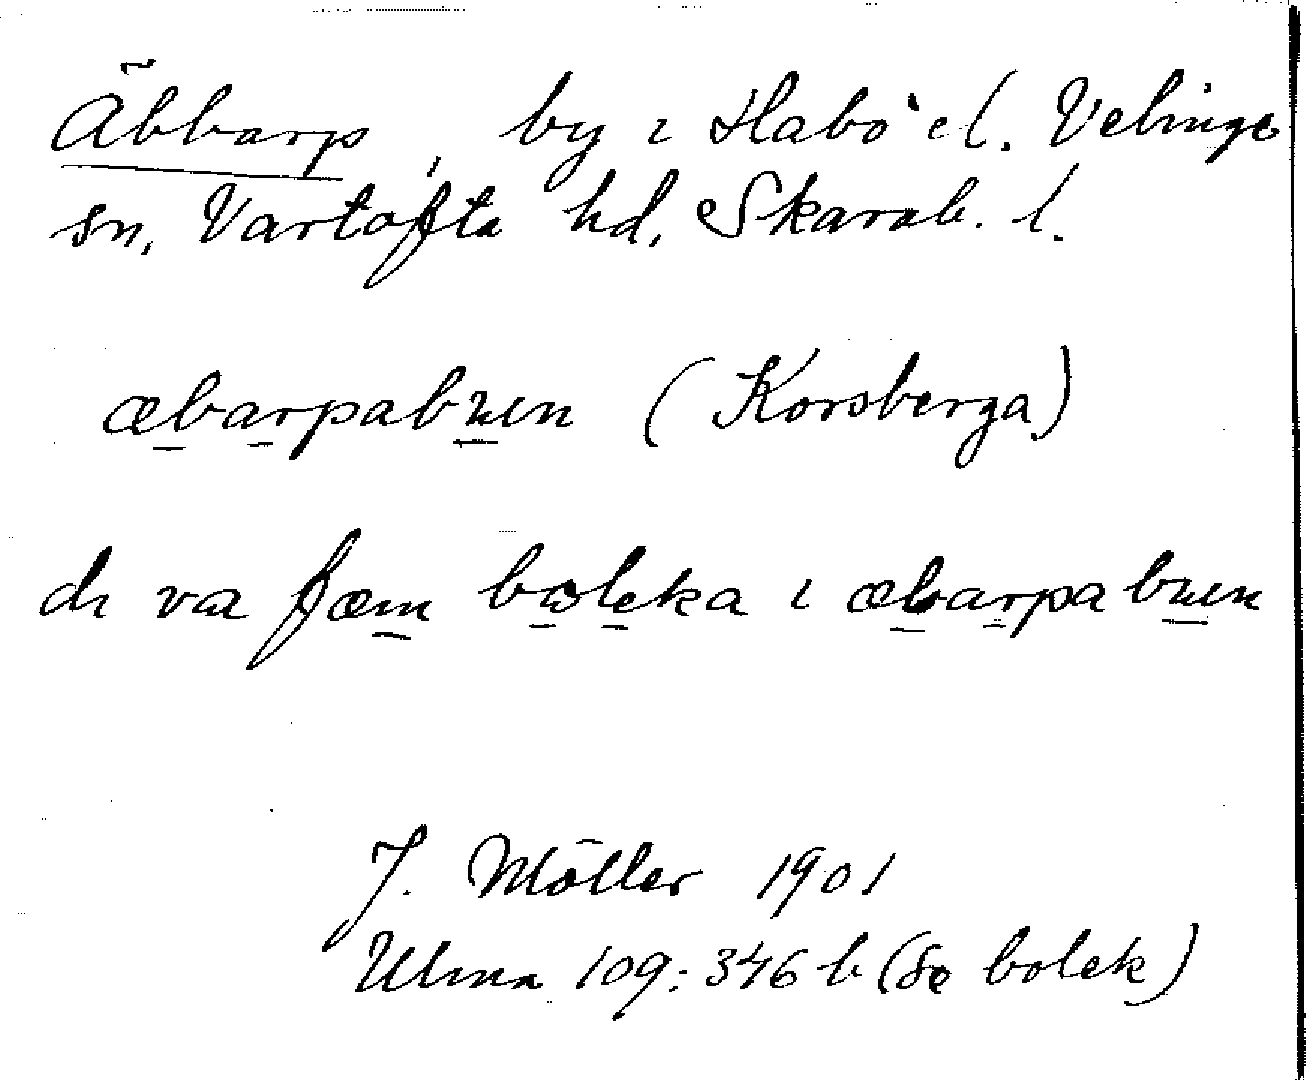 Äbbarp, by i Habo el. Velinge
sn, Vartofta hd, Skarab. l.
æbarpabyen (Korsberga)
de va fæm boleka i æbarpabyen
J. Möller 1901
Ulma 109:346 b (Se bolek)